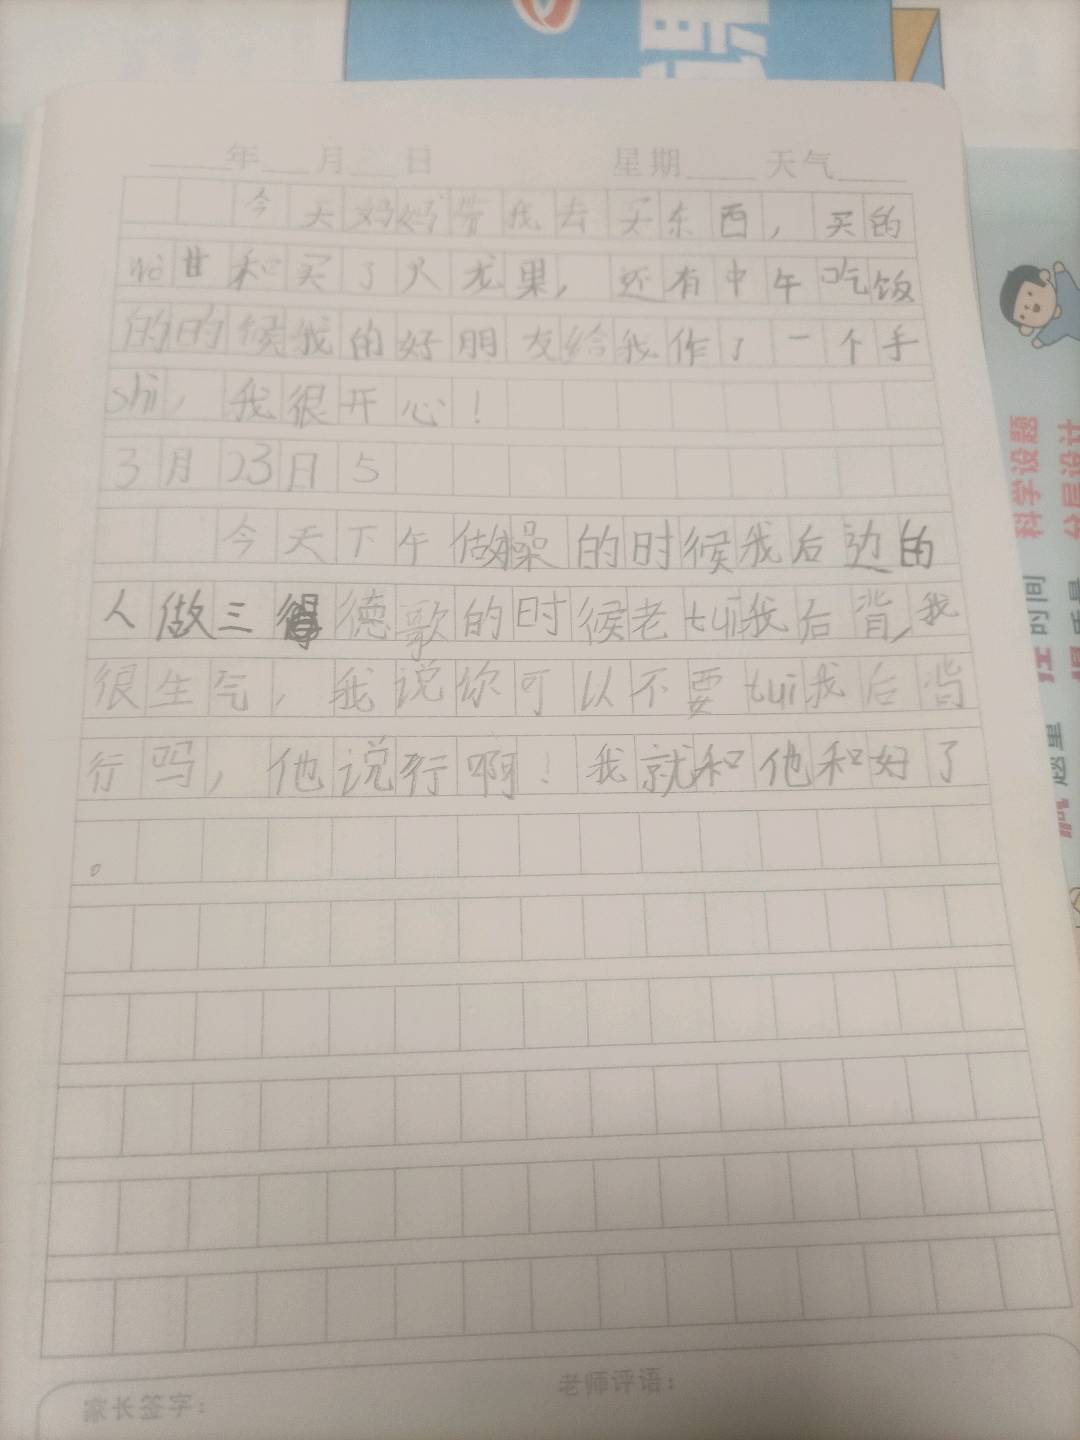 ____年___月___日 星期____ 天气____
今天妈妈带我去买东西，买的
和买了火龙果，还有中午吃饭
的时候我的好朋友给我作了一个手
shi，我很开心！
3月23日5
今天下午做操的时候我后边的
人做三德歌的时候老tui我后背，我
很生气，我说你可以不要tui我后背
行吗，他说行啊！我就和他和好了
。
家长签字：
老师评语：
科学设题
分层设计
时间
题里